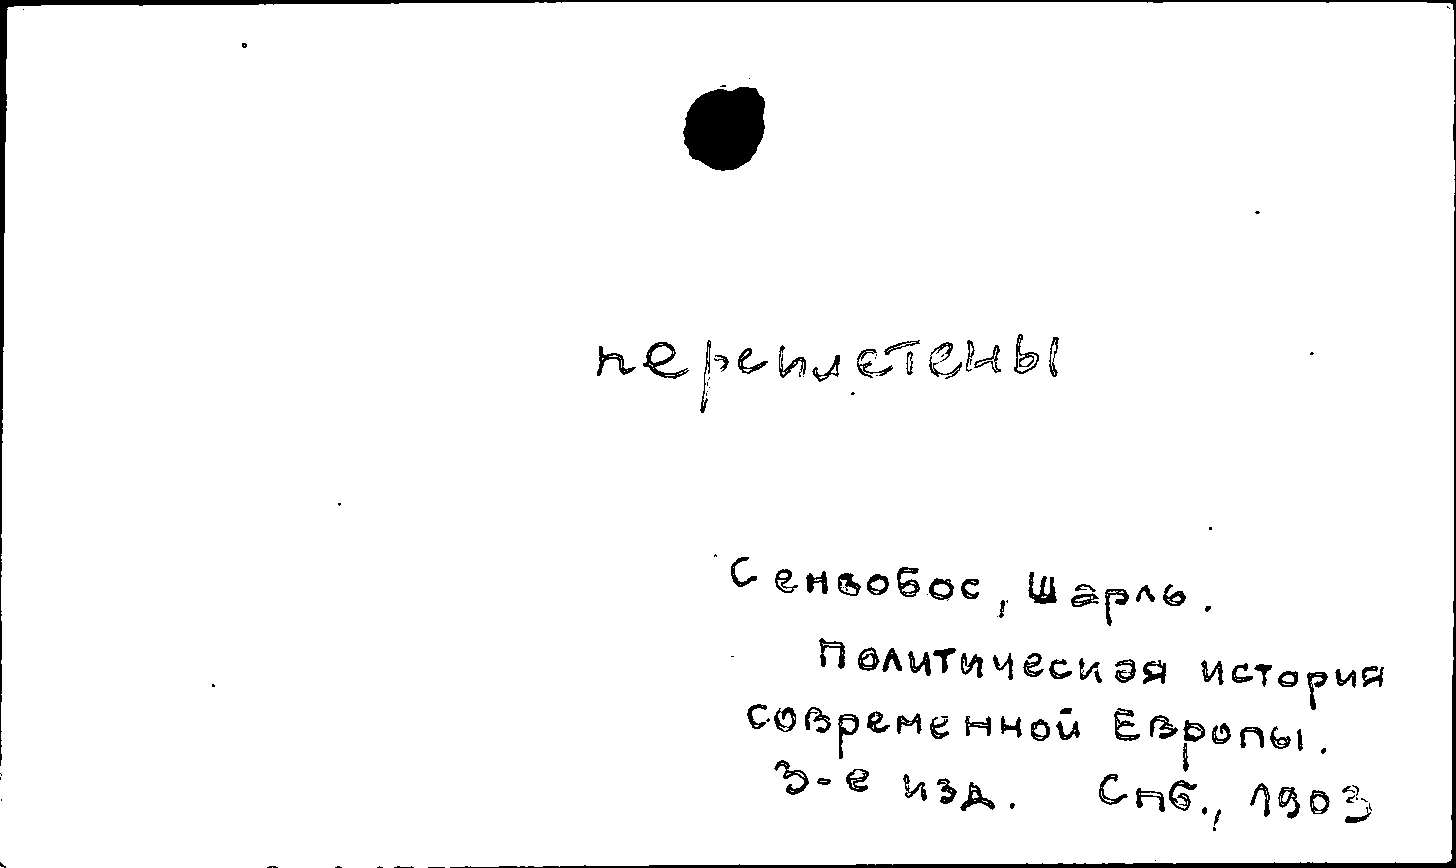 переплетены
Сенвобос, Шарль.
Политическая история
современной Европы.
3-е изд. Спб., 1903